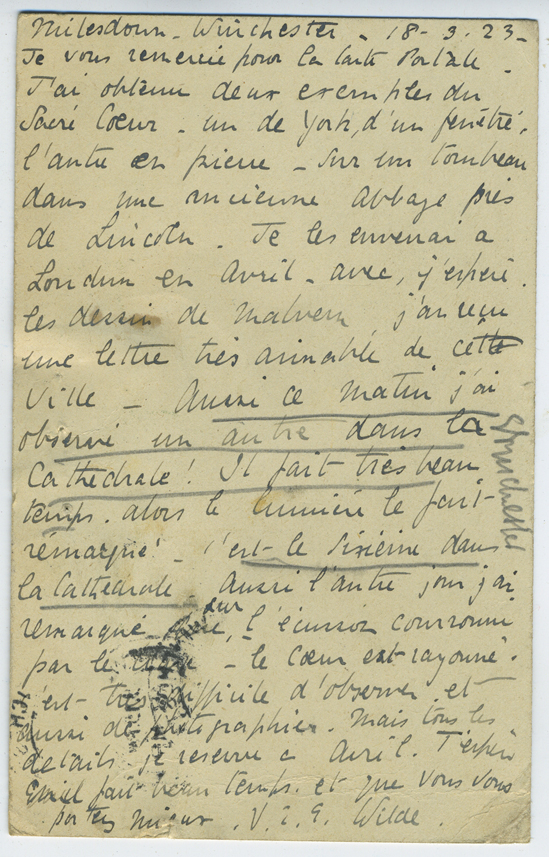 Milesdown - Winchester - 18-3.23-
Je vous remercie pour la Carte Postale -
J'ai obtenu deux exemples du
Sacré Coeur - un de York, d'un fenêtre,
l'autre en pierre - sur un tombeau
dans une ancienne Abbaye près
de Lincoln. Je les enverrai a
London en Avril - avec, j'espere.
les dessin de Malvern j'ai reçu
une lettre très aimable de cette
Ville - Aussi ce matin j'ai
observé un autre dans la
Cathedrale! Il fait très beau
temps. alors le lumière le fait
remarqué - c'est le Sixième dans
la Cathedrale Aussi l'autre jour j'ai
remarqué sur l'écusson couronné
par le - le Coeur est rayonné.
c'est très difficile d'observer et
aussi de photographier. Mais tous les
details je reserve a Avril. J'espère
qu'il fait beau temps. et que vous vous
portez mieux. V. E. G. Wilde.
Winchester